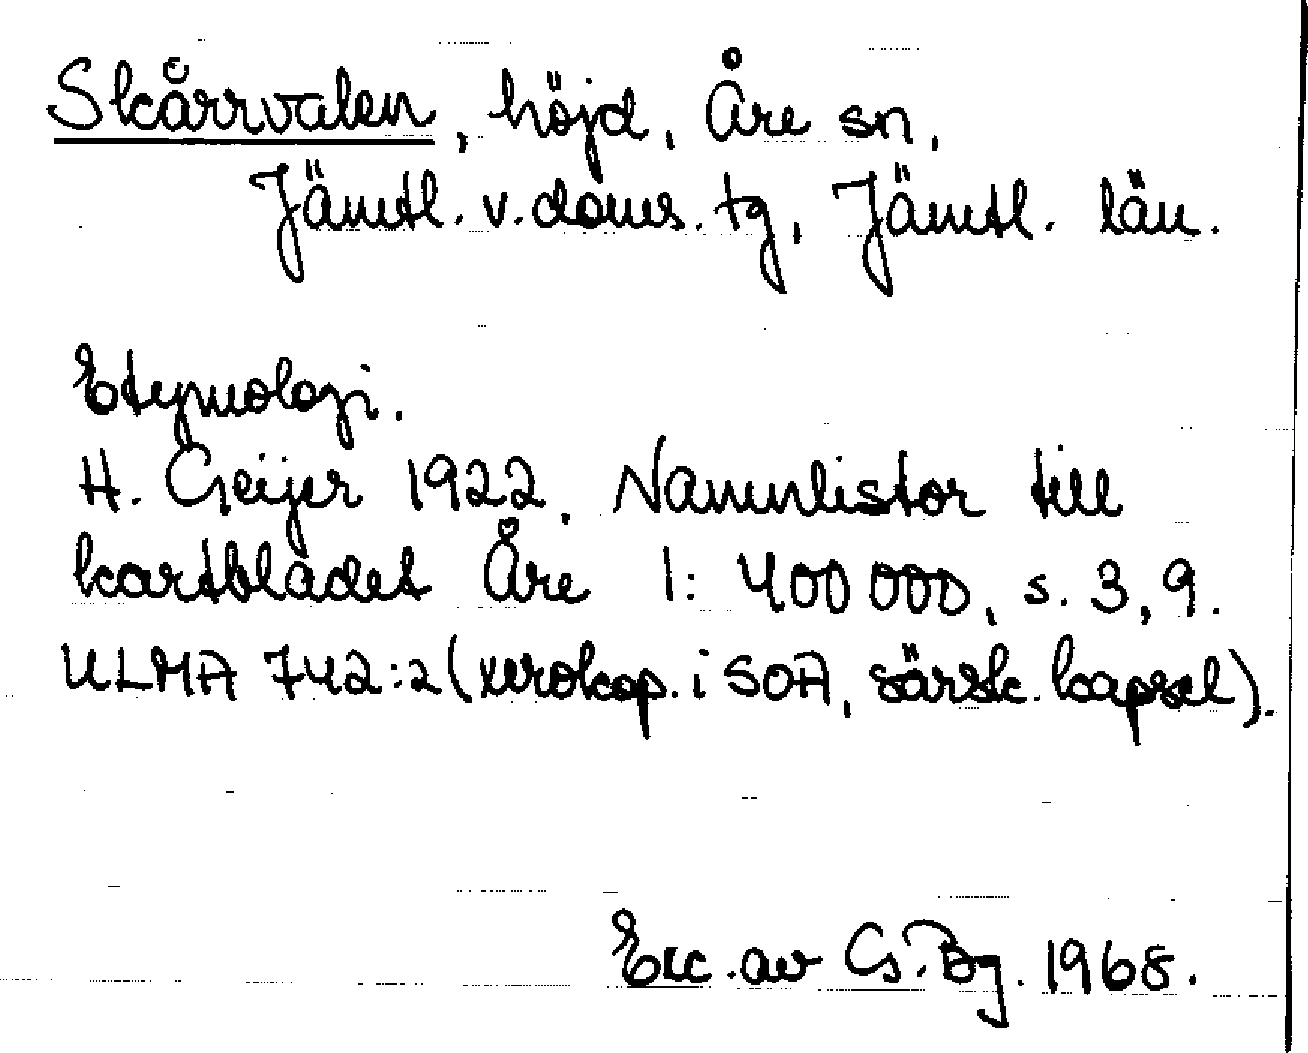 Skårrvalen, höjd, Åre sn,
Jämtl. v. doms. tg, Jämtl. län.
Etymologi.
H. Geijer 1922. Namnlistor till
kartbladet Åre 1: 400 000, s. 3, 9.
ULMA 742:2 (xerokop. i SOA, särsk. kapsel).
Exc. av G. Bg. 1968.